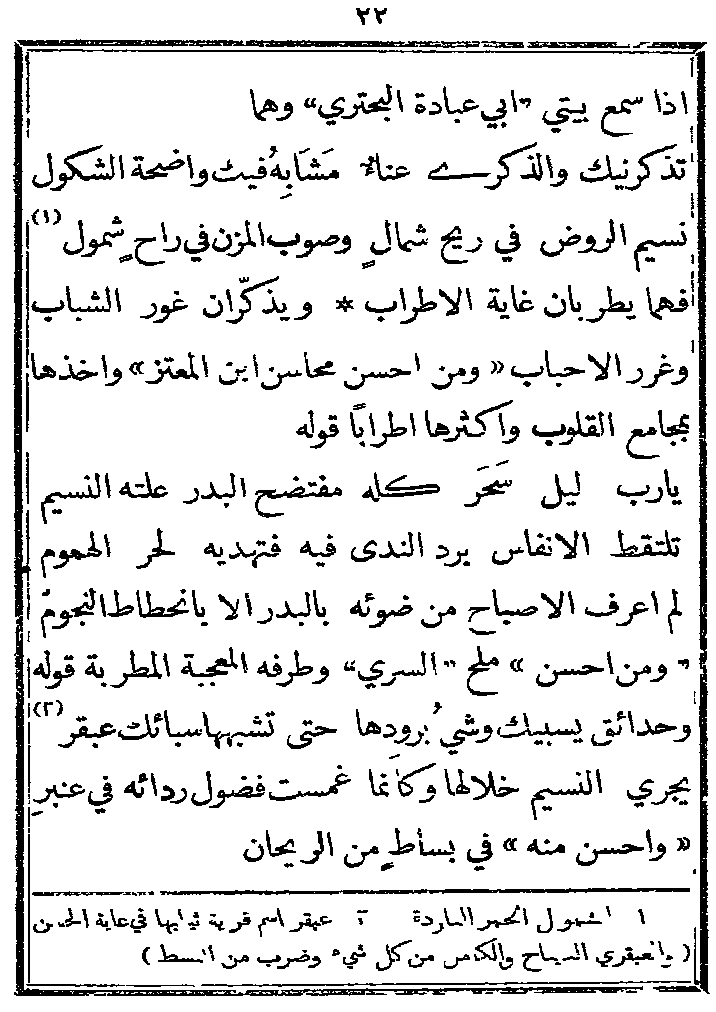 ٢٢
اذا سمع بيتي "ابي عبادة البحتري" وهما
تذكرنيك والذكرى عناءٌ مَشَابِهُ فيك واضحة الشكول
نسيم الروض في ريح شمالٍ وصوب المزن في راحٍ شمول (١)
فهما يطربان غاية الاطراب * ويذكّران غور الشباب
وغرر الاحباب « ومن احسن محاسن ابن المعتز » واخذها
بمجامع القلوب واكثرها اطرابًا قوله
يارب ليل سَحَر كله مفتضح البدر علته النسيم
تلتقط الانفاس برد الندى فيه فتهديه لحر الهموم
لم اعرف الاصباح من ضوئه بالبدر الا بانحطاط النجومْ
" ومن احسن » ملح "السري" وطرفه المعجبة المطربة قوله
وحدائق يسبيك وشيُ برودِها حتى تشبهها سبائك عبقر (٢)
يجري النسيم خلالها وكانما غمست فضول ردائه في عنبرِ
« واحسن منه » في بساطٍ من الريحان
١ الشمول الخمر الباردة ٢ عبقر اسم قرية ثيابها في غاية الحسن
( والعبقري الديباج والكامل من كل شيء وضرب من البسط )